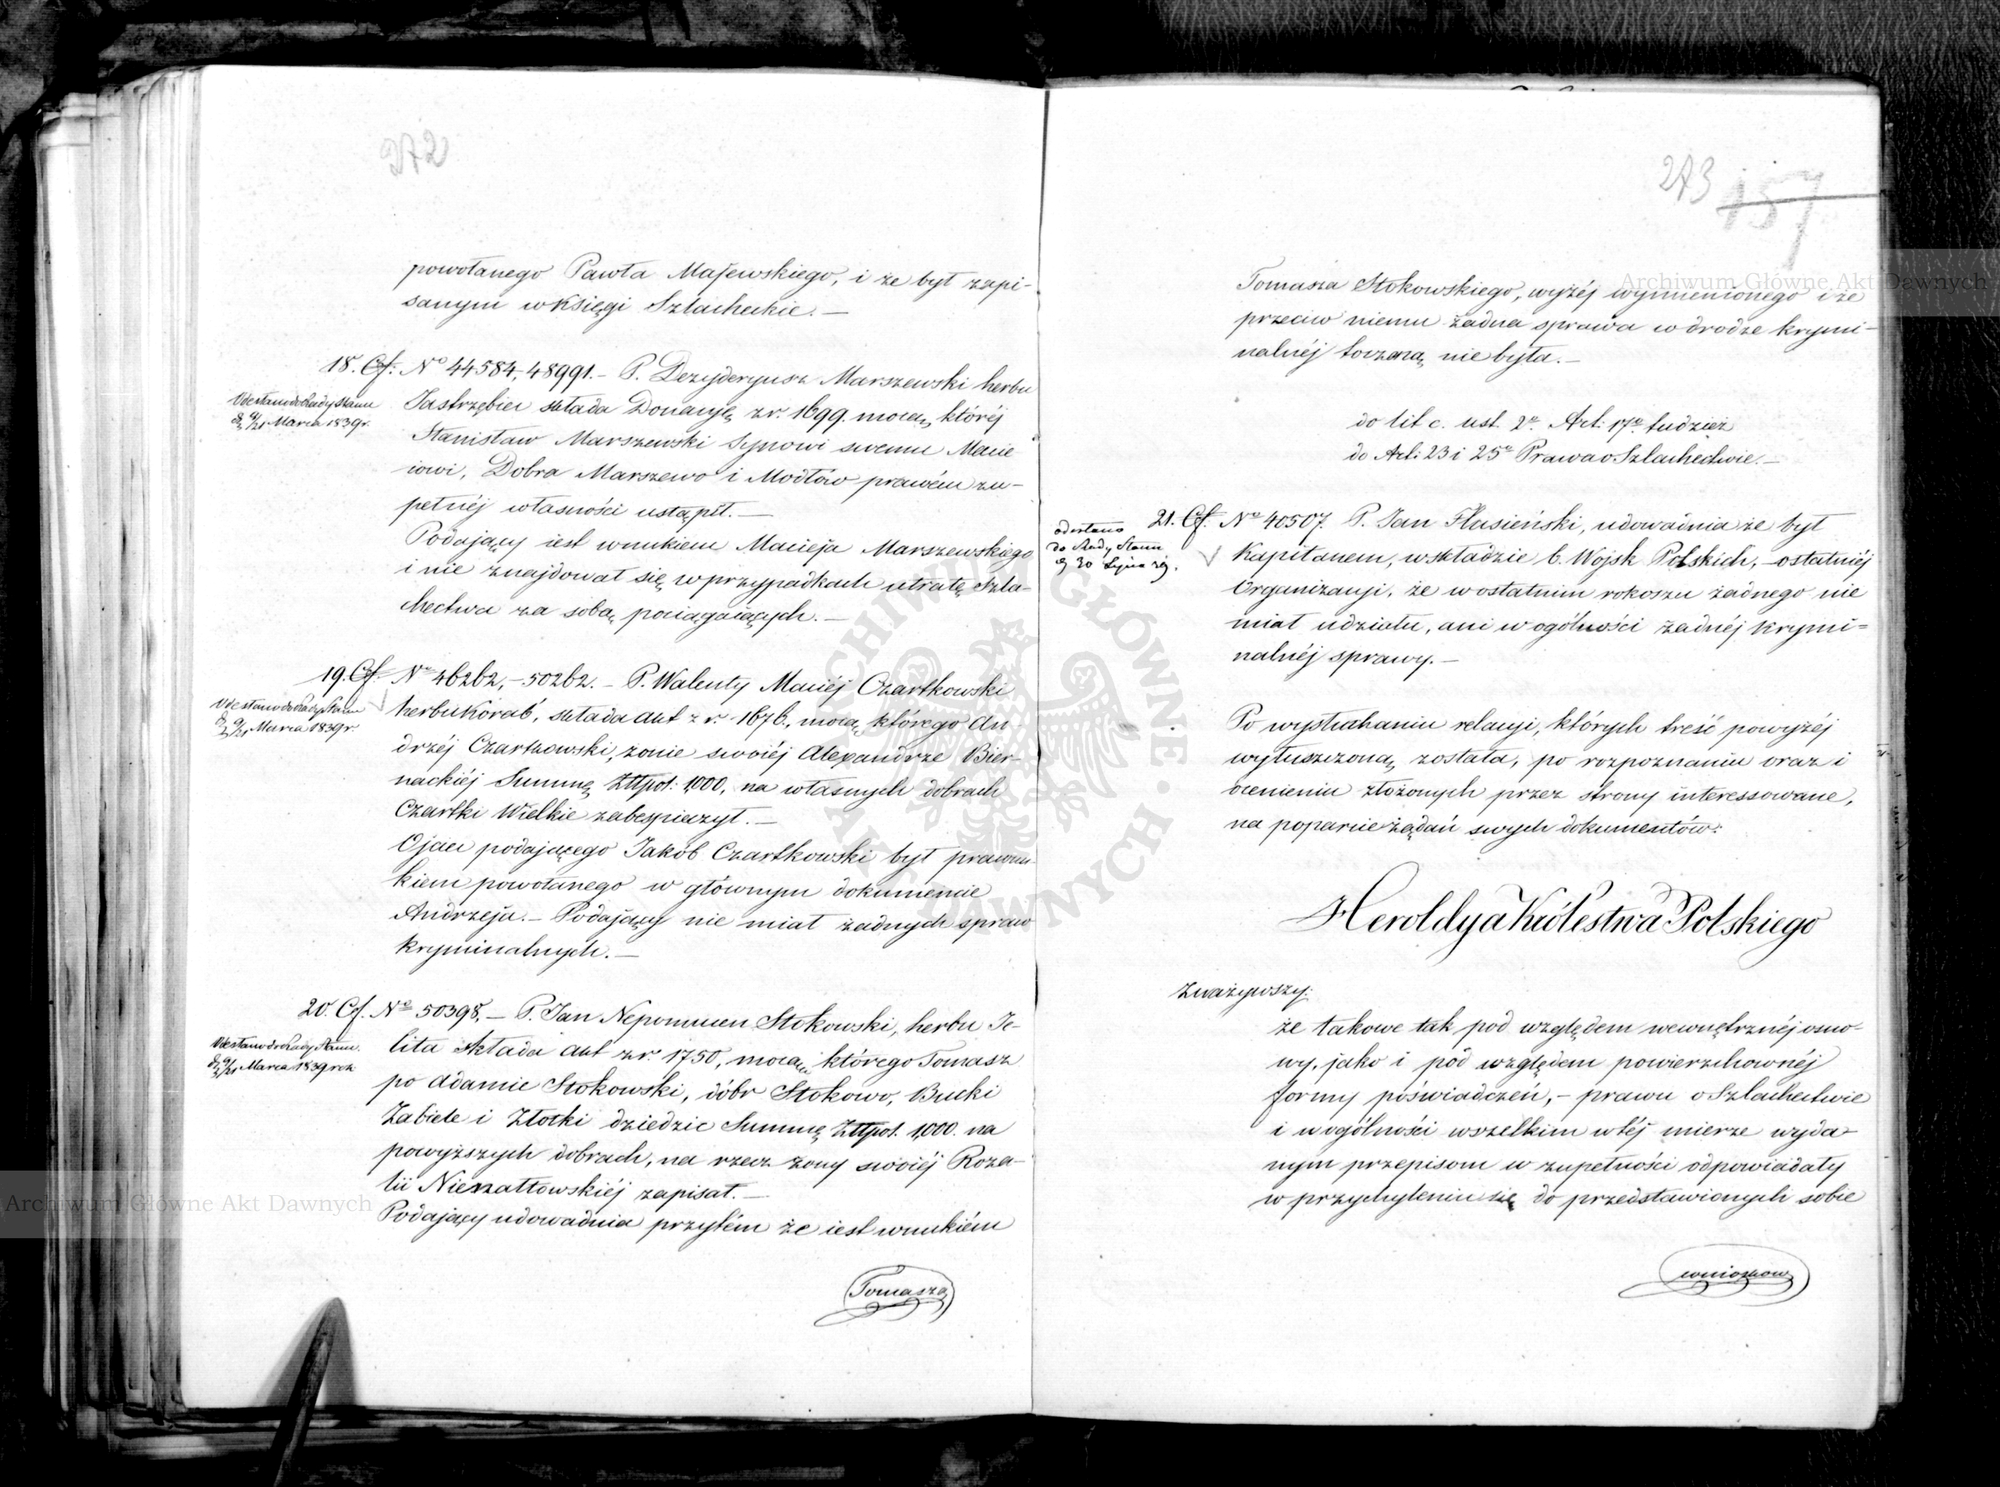 272
powołanego Pawła Majewskiego, i że był zapi-
sanym w Księgi Szlacheckie. —
18. Cf. No 44584, 48991. — P. Dezyderyusz Marszewski herbu
Odesłano do Rady Stanu
d. 9/21 Marca 1839 r.
Jastrzębiec składa Donacyę z r. 1699. mocą, któréj
Stanisław Marszewski Synowi swemu Macie
iowi, Dobra Marszewo i Modłów prawem zu-
pełnéj własności ustąpił. —
Podający iest wnukiem Macieja Marszewskiego
i nie znajdował się w przypadkach utratę Szla-
chectwa za sobą, pociągaiących. —
19. Cf. No 46262, — 50262. — P. Walenty Maciéj Czartkowski
Odesłano do Rady Stanu
d. 9/21 Marca 1839 r.
herbu Korab, składa akt z r. 1676. mocą, którego An-
drzéj Czartkowski, żonie swoiéj Alexandrze Bier-
nackiéj Summę Złtpol: 1000, na własnych dobrach
Czartki Wielkie zabespieczył. —
Ojciec podającego Jakób Czartkowski był prawnu-
kiem powołanego w głównym dokumencie
Andrzeja. — Podający nie miał żadnych spraw
kryminalnych. —
20. Cf. No 50398. — P. Jan Nepomucen Stokowski, herbu Je-
Odesłano do Rady Stanu
d. 9/21 Marca 1839 rok
lita składa akt z r. 1750, mocą którego Tomasz
po Adamie Stokowski, dóbr Stokowo, Bucki
Zabiele i Złotki dziedzic Summę Złtpol. 1,000. na
powyższych dobrach, na rzecz żony swoiéj Roza-
lii Niezałtowskiéj zapisał. —
Podający udowadnia przytém że iest wnukiém
Tomasza
273 157
Tomasza Stokowskiego, wyżéj wymienionego i że
przeciw niemu żadna sprawa w drodze krymi-
nalnéj toczoną nie była. —
do lit c. ust. 2o Art: 17o tudzież
do Art: 23 i 25o Prawa o Szlachectwie. —
21. Cf. No 40507. P. Jan Flusieński, udowadnia że był
odesłano
do Rady Stanu
Kapitanem, w składzie b. Wojsk Polskich, — ostatniéj
Organizacyi, że w ostatnim rokoszu żadnego nie
miał udziału, ani w ogólności żadnéj krymi=
nalnéj sprawy. —
Po wysłuchaniu relacyi, których treść powyżéj
wyłuszczoną została, po rozpoznaniu oraz i
ocenieniu złożonych przez strony interessowane,
na poparcie żądań swych dokumentów:
Heroldya Królestwa Polskiego
Zważywszy:
że takowe tak pod względem wewnętrznéj osno-
wy, jako i pod względem powierzchownéj
formy poświadczeń, — prawu o Szlachectwie
i w ogólności wszelkim w téj mierze wyda-
nym przepisom w zupełności odpowiadały
w przychyleniu się do przedstawionych sobie
wniosków
Archiwum Główne Akt Dawnych
Archiwum Główne Akt Dawnych
ARCHIWUM GŁÓWNE AKT DAWNYCH